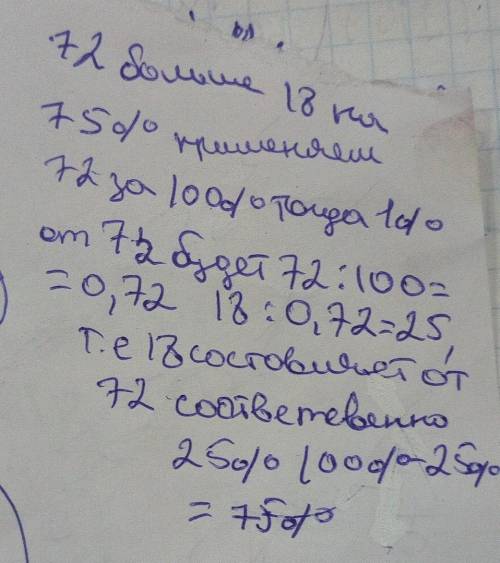 72 больше 18 на
75% применяем
72 за 100% тогда 1%
от 72 будет 72:100=
=0,72 18:0,72=25,
т.е 18 составляет от
72 соответвенно
25% 100%-25%
=75%